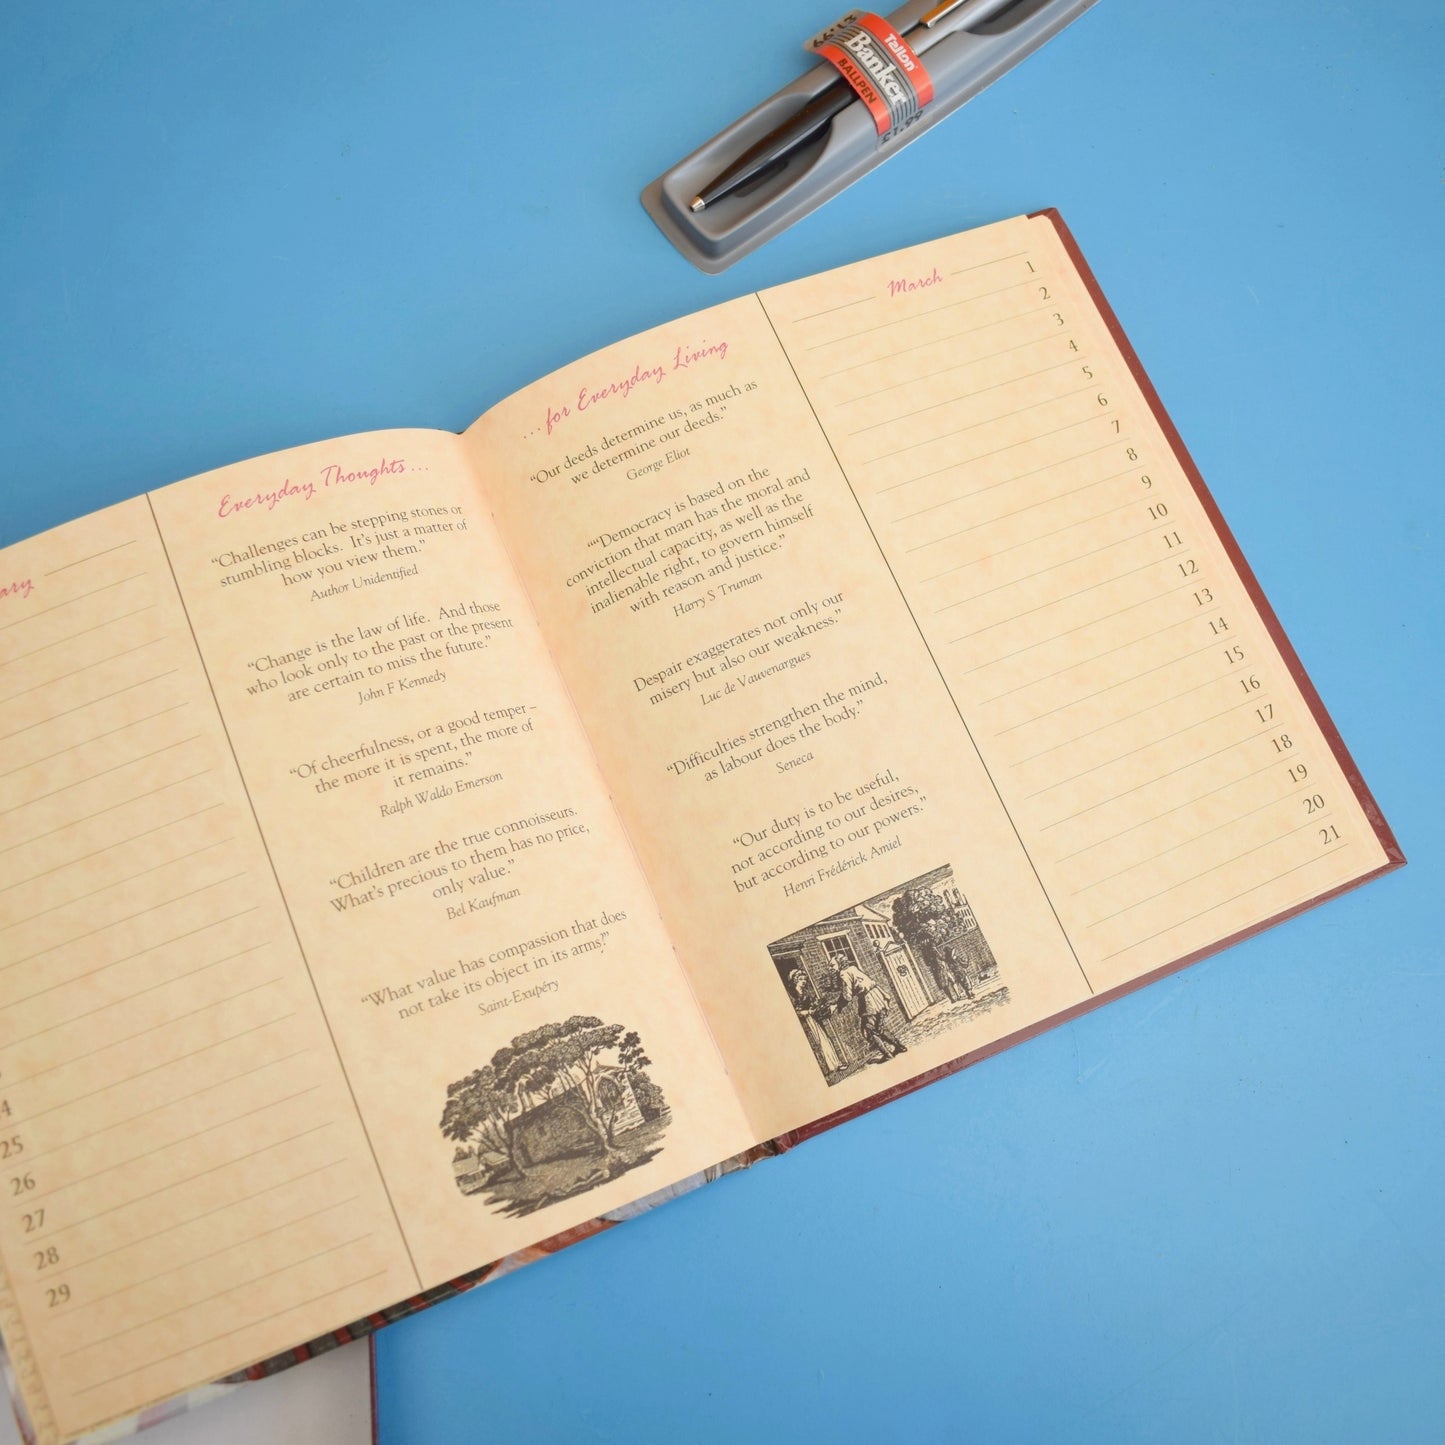 Tallon
Banker
BALLPEN
£1.99
£1.99
ary
25
26
27
28
29
Everyday Thoughts ...
“Challenges can be stepping stones or
stumbling blocks. It’s just a matter of
how you view them.”
Author Unidentified
“Change is the law of life. And those
who look only to the past or the present
are certain to miss the future.”
John F Kennedy
“Of cheerfulness, or a good temper –
the more it is spent, the more of
it remains.”
Ralph Waldo Emerson
“Children are the true connoisseurs.
What’s precious to them has no price,
only value.”
Bel Kaufman
“What value has compassion that does
not take its object in its arms?”
Saint-Exupéry
... for Everyday Living
“Our deeds determine us, as much as
we determine our deeds.”
George Eliot
““Democracy is based on the
conviction that man has the moral and
intellectual capacity, as well as the
inalienable right, to govern himself
with reason and justice.”
Harry S Truman
Despair exaggerates not only our
misery but also our weakness.”
Luc de Vauvenargues
“Difficulties strengthen the mind,
as labour does the body.”
Seneca
“Our duty is to be useful,
not according to our desires,
but according to our powers.”
Henri Frédérick Amiel
March
1
2
3
4
5
6
7
8
9
10
11
12
13
14
15
16
17
18
19
20
21